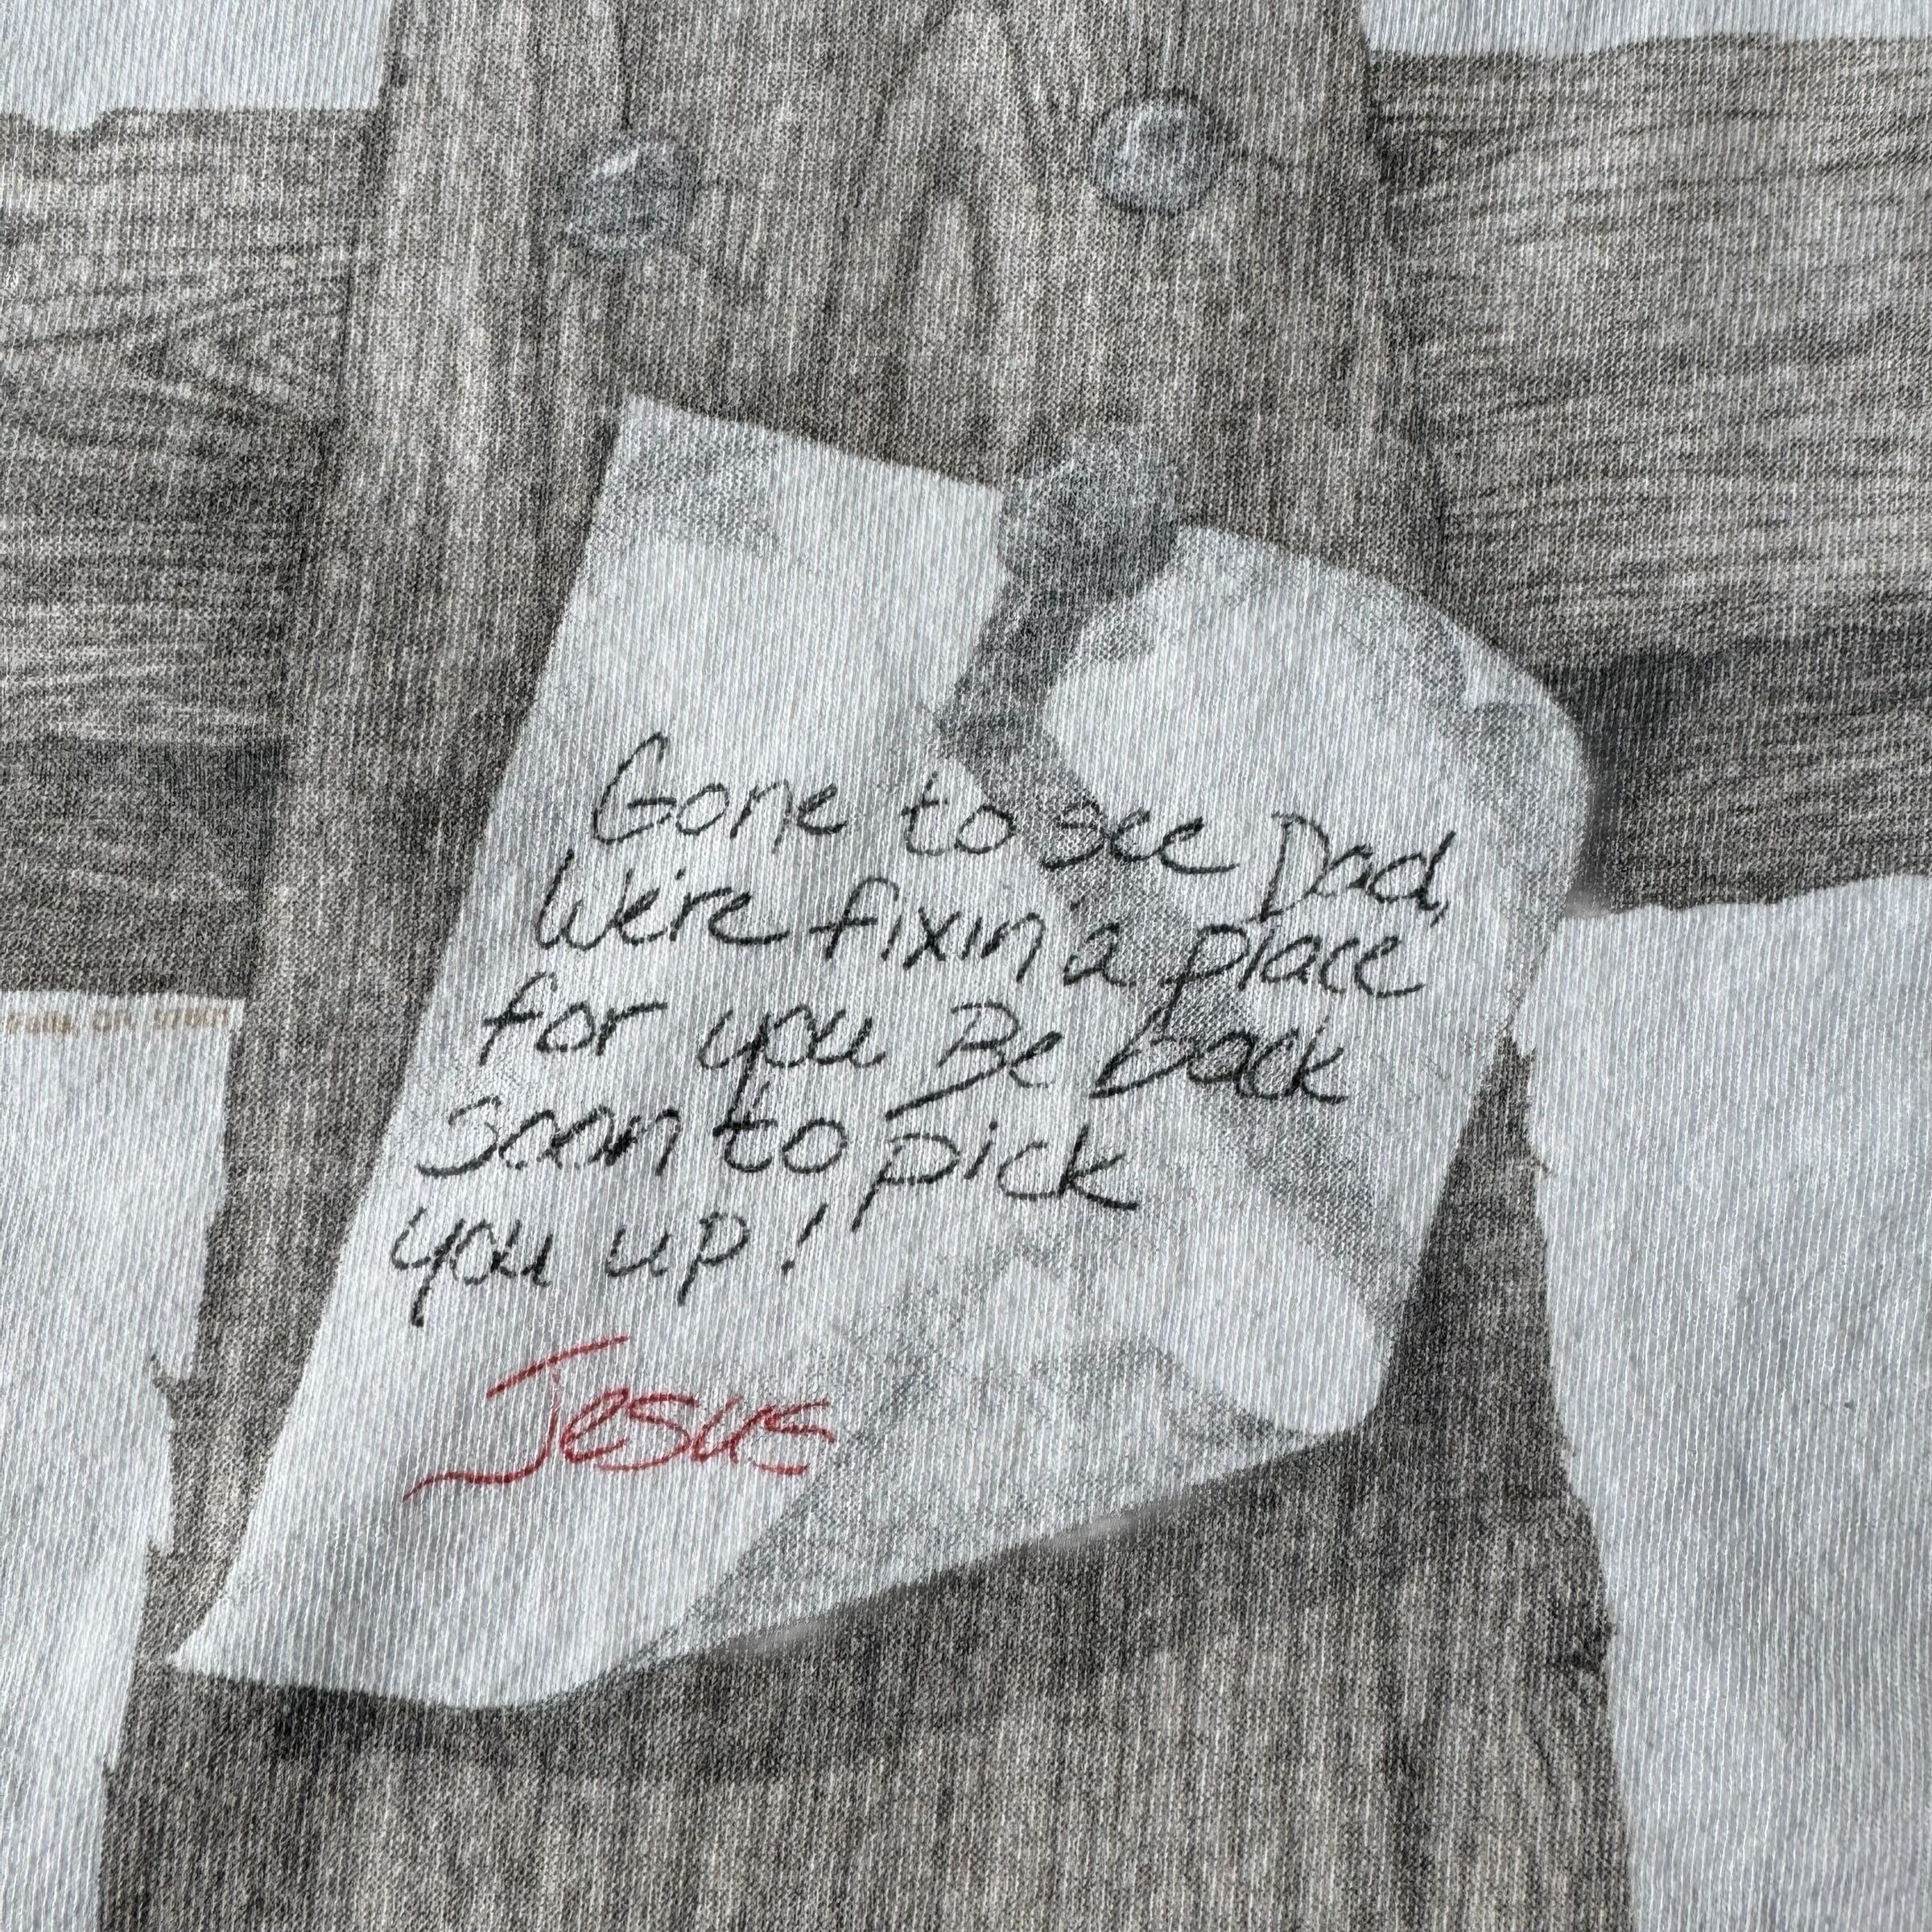 Gone to see Dad,
We're fixin' a place
for you Be back
soon to pick
you up!
Jesus